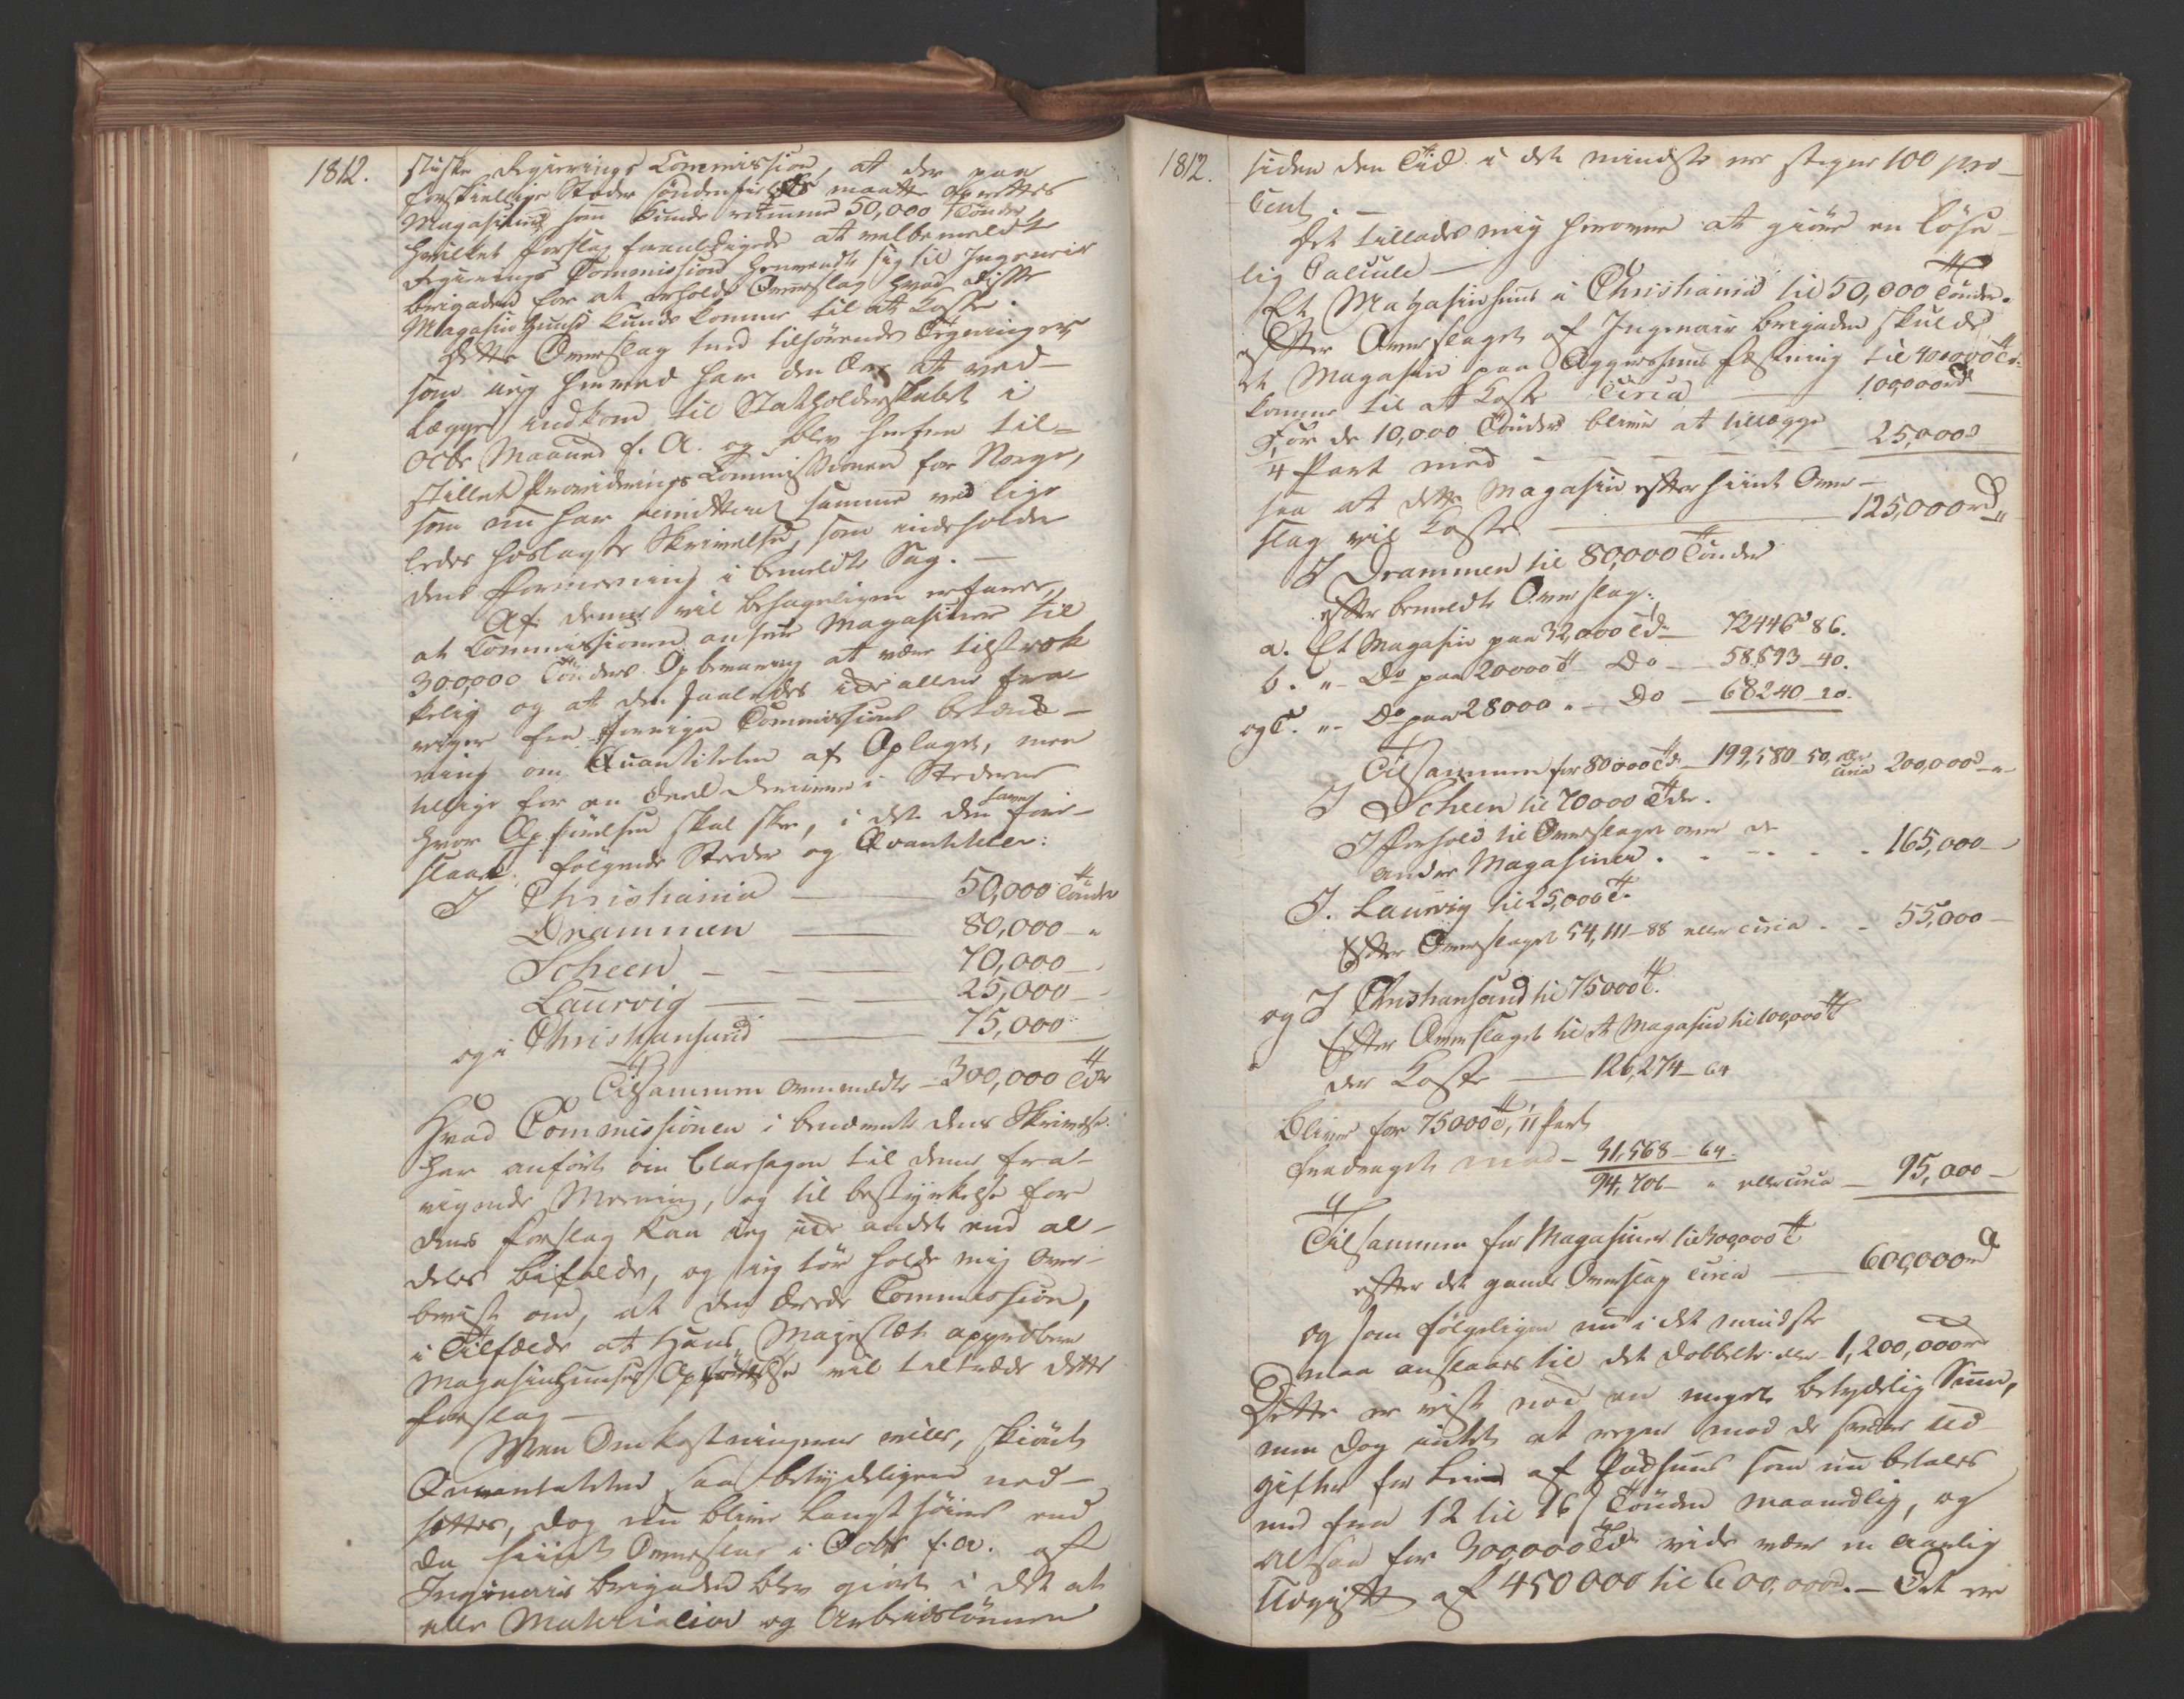 1812.
stiske Regierings Commission, at der paa
forskiellige Steder søndenfields maatte oprettes
Magasiner som kunde rumme 50,000 Tønder
hvilket Forslag foranledigede at velbemeldte
Regierings Commission henvendte sig til Ingenieur
Brigaden for at erholde Overslag hvad disse
Magasin Huuse kunde komme til at koste.
Dette Overslag med tilhørende Tegninger
som ieg herved har den Ære at ved-
lægge indkom til Statholderskabet i
Octbr Maaned f. A. og blev herfra til-
stillet Providerings Commissionen for Norge,
som nu har remitteret samme ved lige
ledes hoslagte Skrivelse, som indeholder
dens Formening i bemeldte Sag. —
Af denne vil behageligen erfares,
at Commissionen anseer Magasiner til
300,000 Tønders Opbevaring at være tilstræk
kelig og at den saaledes ikke allene fra
viger fra forrige Commissions betænk-
ning om Quantiteten af Oplaget, men
tillige for en deel derimod i Stederne
hvor Opførelsen skal skee, i det den fore-
slaaer følgende Steder og Qvantiteter:
I Christiania — 50,000 Tønder
Drammen — 80,000 — "
Scheen — 70,000 —
Laurvig — 25,000 —
og i Christiansand — 75,000
Tilsammen ovenmeldte — 300,000 Tdr
Hvad Commissionen i benævnte dens Skrivelse
har anført om Aarsagen til dens fra-
vigende Meening, og til bestyrkelse for
dens Forslag kan ieg ikke andet end al-
deles bifalde, og ieg tør holde mig over-
beviist om, at den ærede Commission,
i Tilfælde at Hans Majestæt approberer
Magasinhuuses Opførelse vil tiltræde dette
Forslag —
Men Omkostningerne ville, skiønt
Qvantiteten saa betydeligen ned-
sættes, dog nu blive langt høiere end
da hiint Overslag i Octbr f. A. af
Ingenieur Brigaden blev giort i det at
alle Materialier og Arbeidslønnen
1812.
siden den Tid i det mindste er stegen 100 pro-
Cent. —
Det tillades mig herover at giøre en løse-
lig Calcule —
Et Magasinhuus i Christiania til 50,000 Tønder.
efter Overslaget af Ingenieur Brigaden skulde
et Magasin paa Aggershuus Fæstning til 40000 Tdr
komme til at koste circa — 100,000 rd
For de 10,000 Tønder bliver at tillægge
¼ Part med — 25,000
saa at dette Magasin efter hiint Over-
slag vil koste — 125,000 rd "
I Drammen til 80,000 Tønder
efter bemeldte Overslag:
a. Et Magasin paa 32,000 Tdr — 72446 86.
b. " - Do paa 20000 T — Do — 58,893 - 40.
og c. " - Do paa 28000 " — Do — 68240 - 20.
Tilsammen for 80000 Tdr — 199,580 - 50, eller circa 200,000 - "
I Scheen til 70000 Tdr.
I Forhold til Overslaget over de
andre Magasiner . . . . 165,000 —
I. Laurvig til 25,000 T.
Efter Overslaget 54,111 - 88 eller circa . . 55,000 —
og I Christiansand til 75000 T.
Efter Overslaget til et Magasin til 100,000 T
der koste — 126,274 - 64
bliver for 75000 T, ¼ Part
fradraget med — 31,568 - 64.
94,706 - " eller circa — 95,000 —
Tilsammen for Magasiner til 300,000 T
efter det gamle Overslag circa — 600,000 rd
og som følgeligen nu i det mindste
maa anslaaes til det dobbelte eller 1,200,000 rd
Dette er vist nok en meget betydelig Sum,
men dog intet at regne mod de svære Ud-
gifter for Leie af Pakhuus som nu betales
med fra 12 til 16 ß Tønden maanedlig, og
altsaa for 300,000 Tdr vilde være en aarlig
Udgift af 450000 til 600,000. — Det er